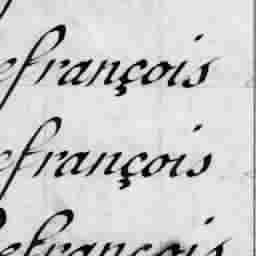 efrançois
efrançois
efrançois